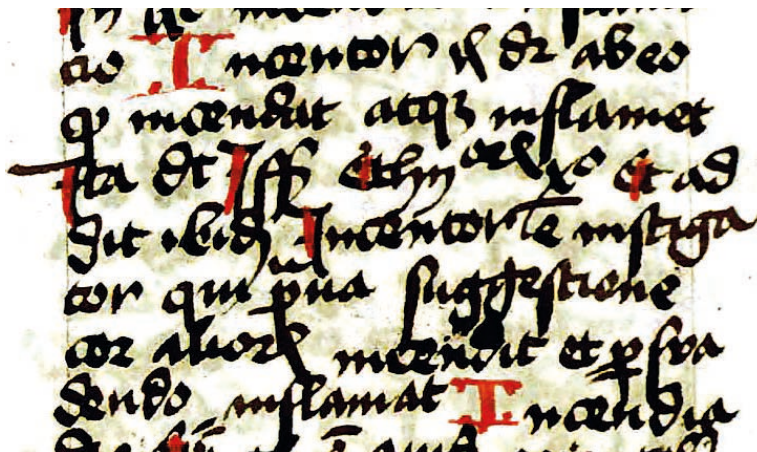 cio Incentor dr ab eo
qp incendat atqꝫ inflamet
Ita dt Iff ethy orꝝ xº et ad
dit ibidꝫ Incentor ē instiga
tor qui pͣua suggestione
cor alioꝝ incendit et ꝑsva
dendo inflamat Incendia